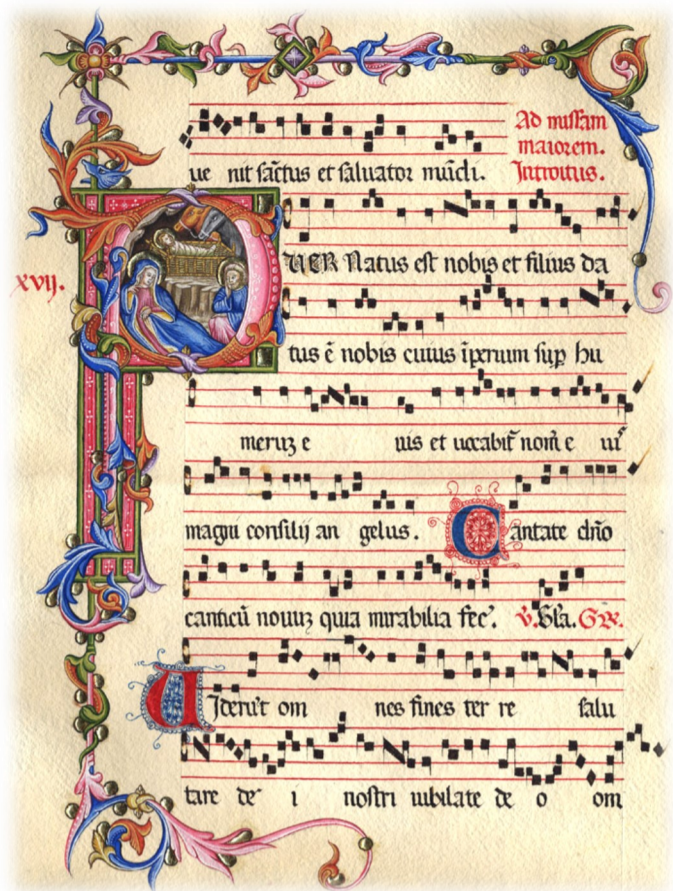 ue nit sāctus et saluator mūdi. Ad missam
maiorem.
Introitus.
PUER Natus est nobis et filius da
xvij.
tus ē nobis cuius īperium sup hu
meruz e ius et uocabit nom e ius
magni consilij an gelus. Cantate dño
canticū nouuz quia mirabilia fec'. V. Gla. Gr.
Uiderūt om nes fines ter re salu
tare de i nostri iubilate de o om